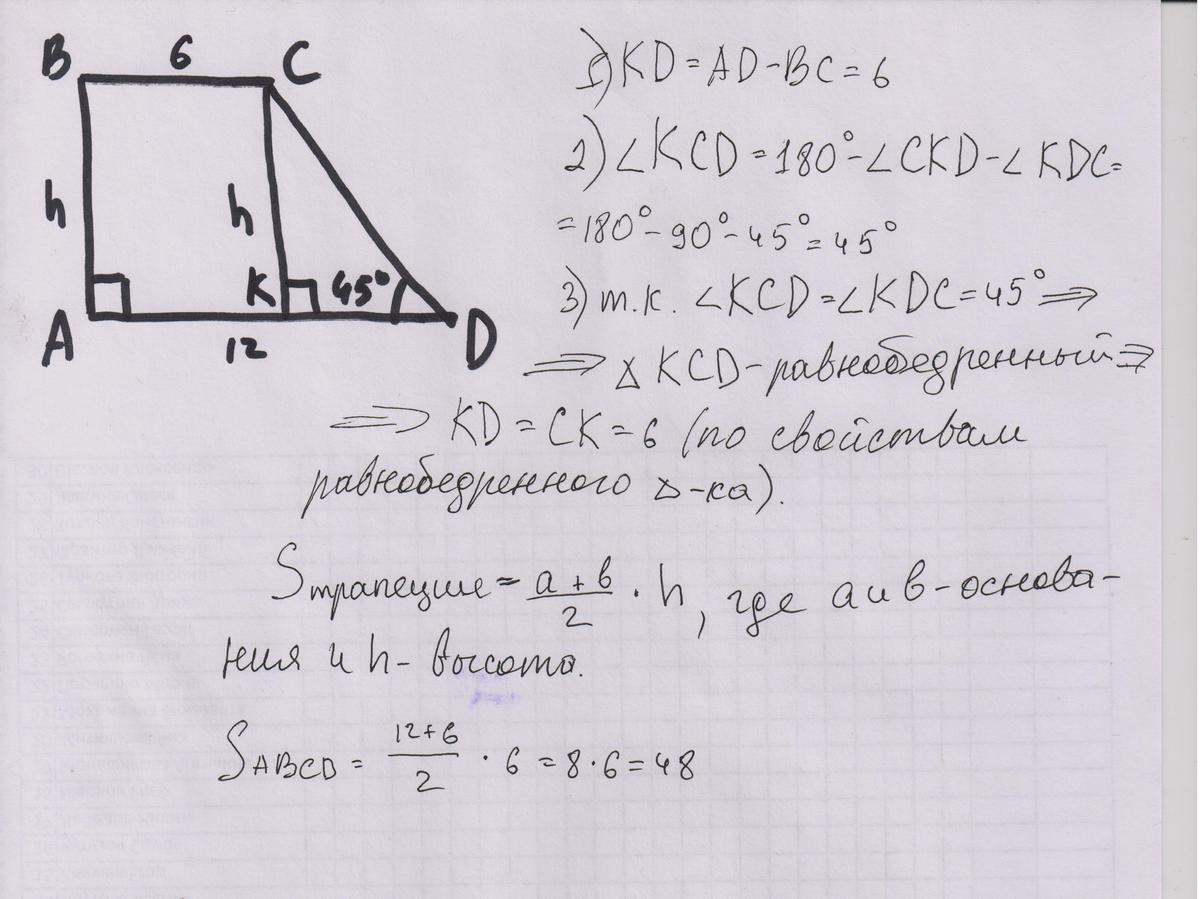 B 6 C
h h
K 45°
A 12 D
1) KD = AD - BC = 6
2) ∠KCD = 180° - ∠CKD - ∠KDC =
= 180° - 90° - 45° = 45°
3) т.к. ∠KCD = ∠KDC = 45° ⇒
⇒ Δ KCD - равнобедренный ⇒
⇒ KD = CK = 6 (по свойствам
равнобедренного Δ-ка).
Sтрапеции = a + b / 2 · h, где a и b - основа-
ния и h - высота.
SABCD = 12 + 6 / 2 · 6 = 8 · 6 = 48